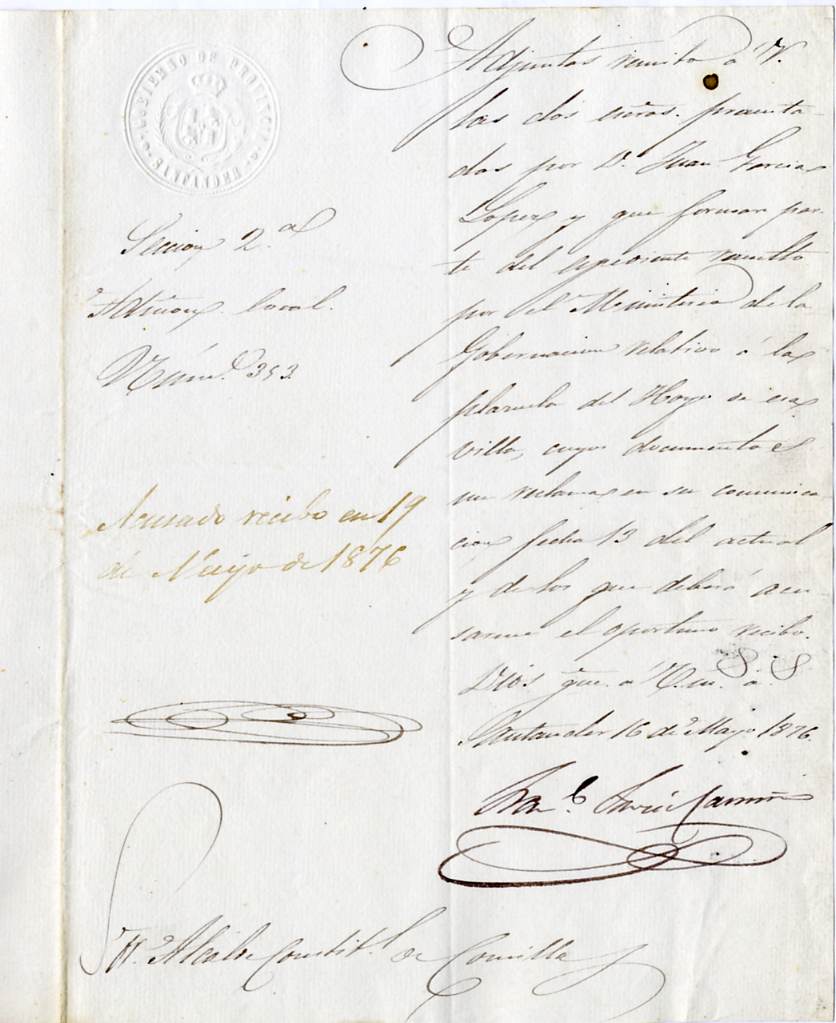 GOBIERNO DE PROVINCIA
SANTANDER
Seccion 2.ª
Admon local.
Núm.º 353
Acusado recibo en 19
de Mayo de 1876
Adjuntas remito á V.
las dos presenta-
das por D. Juan Garcia
Lopez y que forman par-
te del espediente resuelto
por el Ministerio de la
Gobernacion relativo á la
plazuela del Hoyo de esa
villa, cuyos documentos
me reclama en su comunica
cion fecha 13 del actual
y de los que deberá acu
sarme el oportuno recibo.
Dios gue. á V. m. a.
Santander 16 de Mayo 1876.
Fran.co
Sr. Alcalde Constit.l de Comillas